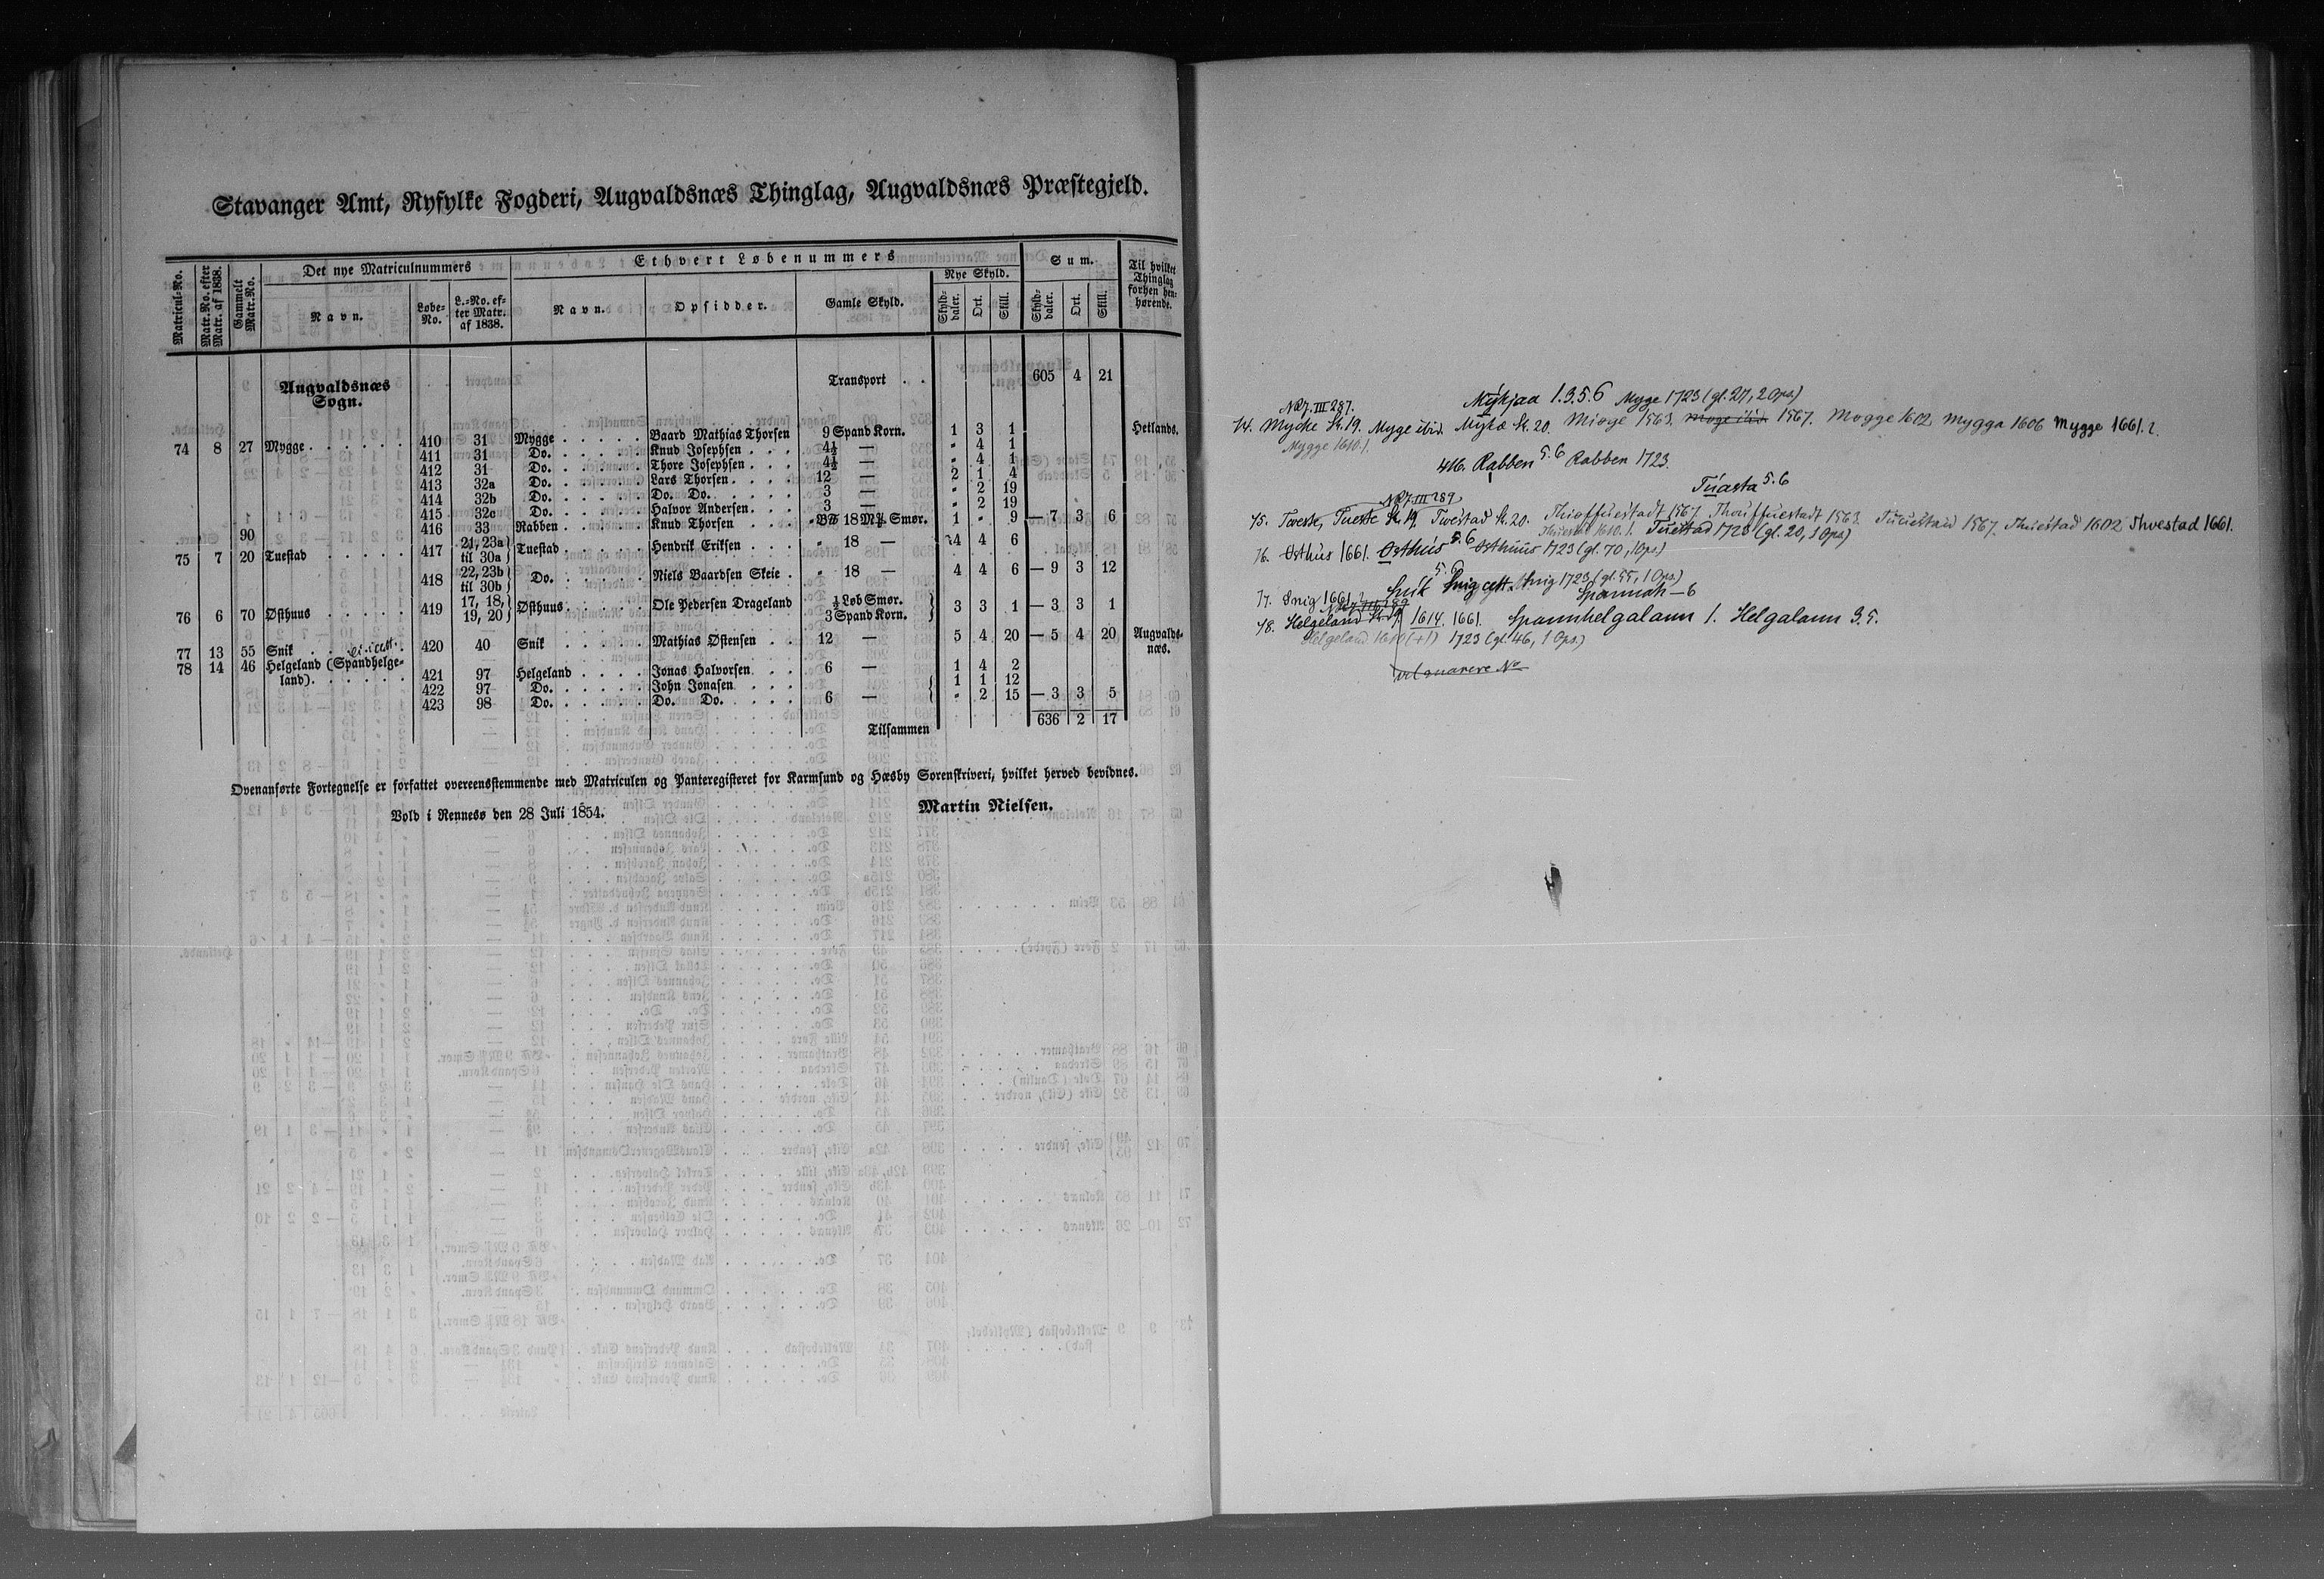 Stavanger Amt, Ryfylke Fogderi, Augvaldsnæs Thinglag, Augvaldsnæs Præstegjeld.
Matricul-No. Matr.No. efter Matr. af 1838. Gammelt Matr.No. Det nye Matriculnummers Ethvert Løbenummers Sum. Til hvilket Thinglag forhen henhørende.
Navn. Løbe-No. L.-No. efter Matr. af 1838. Navn. Opsidder. Gamle Skyld. Nye Skyld. Skylddaler. Ort. Skill. Skylddaler. Ort. Skill.
Augvaldsnæs Transport . . 605 4 21
Sogn.
74 8 27 Mygge . . . . . . 410 31 Mygge . . . . . Baard Mathias Thorsen 9 Spand Korn. 1 3 1 Hetlands.
411 31 Do. . . . . . Knud Josephsen . . . 4½ — " 4 1
412 31 Do. . . . . . Thore Josephsen . . . 4½ — " 4 1
413 32a Do. . . . . . Lars Thorsen . . . . 12 — 2 1 4
414 32b Do. . . . . . Do. Do. . . . . . 3 — " 2 19
415 32c Do. . . . . . Halvor Andersen . . . 3 — " 2 19
90 416 33 Rabben . . . . . Knud Thorsen . . . "B℔ 18 M℔ Smør. 1 " 9 — 7 3 6
75 7 20 Tuestad . . . . . 417 21, 23a til 30a Tuestad . . . . . Hendrik Eriksen . . . " 18 — 4 4 6
418 22, 23b til 30b Do. . . . . . Niels Baardsen Skeie . " 18 — 4 4 6 — 9 3 12
76 6 70 Østhuus . . . . . 419 17, 18, 19, 20 Østhuus . . . . . Ole Pedersen Drageland ½ Løb Smør. 3 Spand Korn. 3 3 1 — 3 3 1
77 13 55 Snik . . . . . 420 40 Snik . . . . . Mathias Østensen . . 12 — 5 4 20 — 5 4 20 Augvaldsnæs.
78 14 46 Helgeland (Spandhelgeland). . . . . . 421 97 Helgeland . . . . Jonas Halvorsen . . . 6 — 1 4 2
422 97 Do. . . . . . John Jonasen . . . 1 1 12
423 98 Do. . . . . . Do. Do. . . . . 6 — " 2 15 — 3 3 5
Tilsammen 636 2 17
Ovenanførte Fortegnelse er forfattet overeensstemmende med Matriculen og Panteregisteret for Karmsund og Hæsby Sorenskriveri, hvilket herved bevidnes.
Vold i Rennesø den 28 Juli 1854. Martin Nielsen.
Mykjaa 1.3.5.6 Myge 1723 (gl. 27, 2 Ops)
NRJ. III 287.
74. Mycke Sk. 19. Myge ibid. Mykæ Sk. 20. Miøge 1563. Moge ibid. 1567. Mogge 1602 Mygga 1606 Mygge 1661.2.
Mygge 1610.1.
416. Rabben 5.6 Rabben 1723.
Tuasta 5.6
NRJ. III 289.
75. Tweste, Tueste Sk. 19, Twestad Sk. 20. Thioffuestadt 1567. Thouffuestadt 1563. Tuuestad 1567. Thuestad 1602 Thvestad 1661.
Thuestad 1610.1. Tuestad 1723 (gl. 20, 1 Ops)
76. Østhus 1661. Østhus 5.6 Østhuus 1723 (gl. 70, 1 Ops)
77. Snig 1661.2 Snik 5.6 Snig cett. Snig 1723 (gl. 55, 1 Ops.)
Spannah—6
78. Helgeland Sk. 19. 1614. 1661. Spannhelgalann 1. Helgalann 3.5.
Helgeland 1610 (+1) 1723 (gl. 46, 1 Ops.)